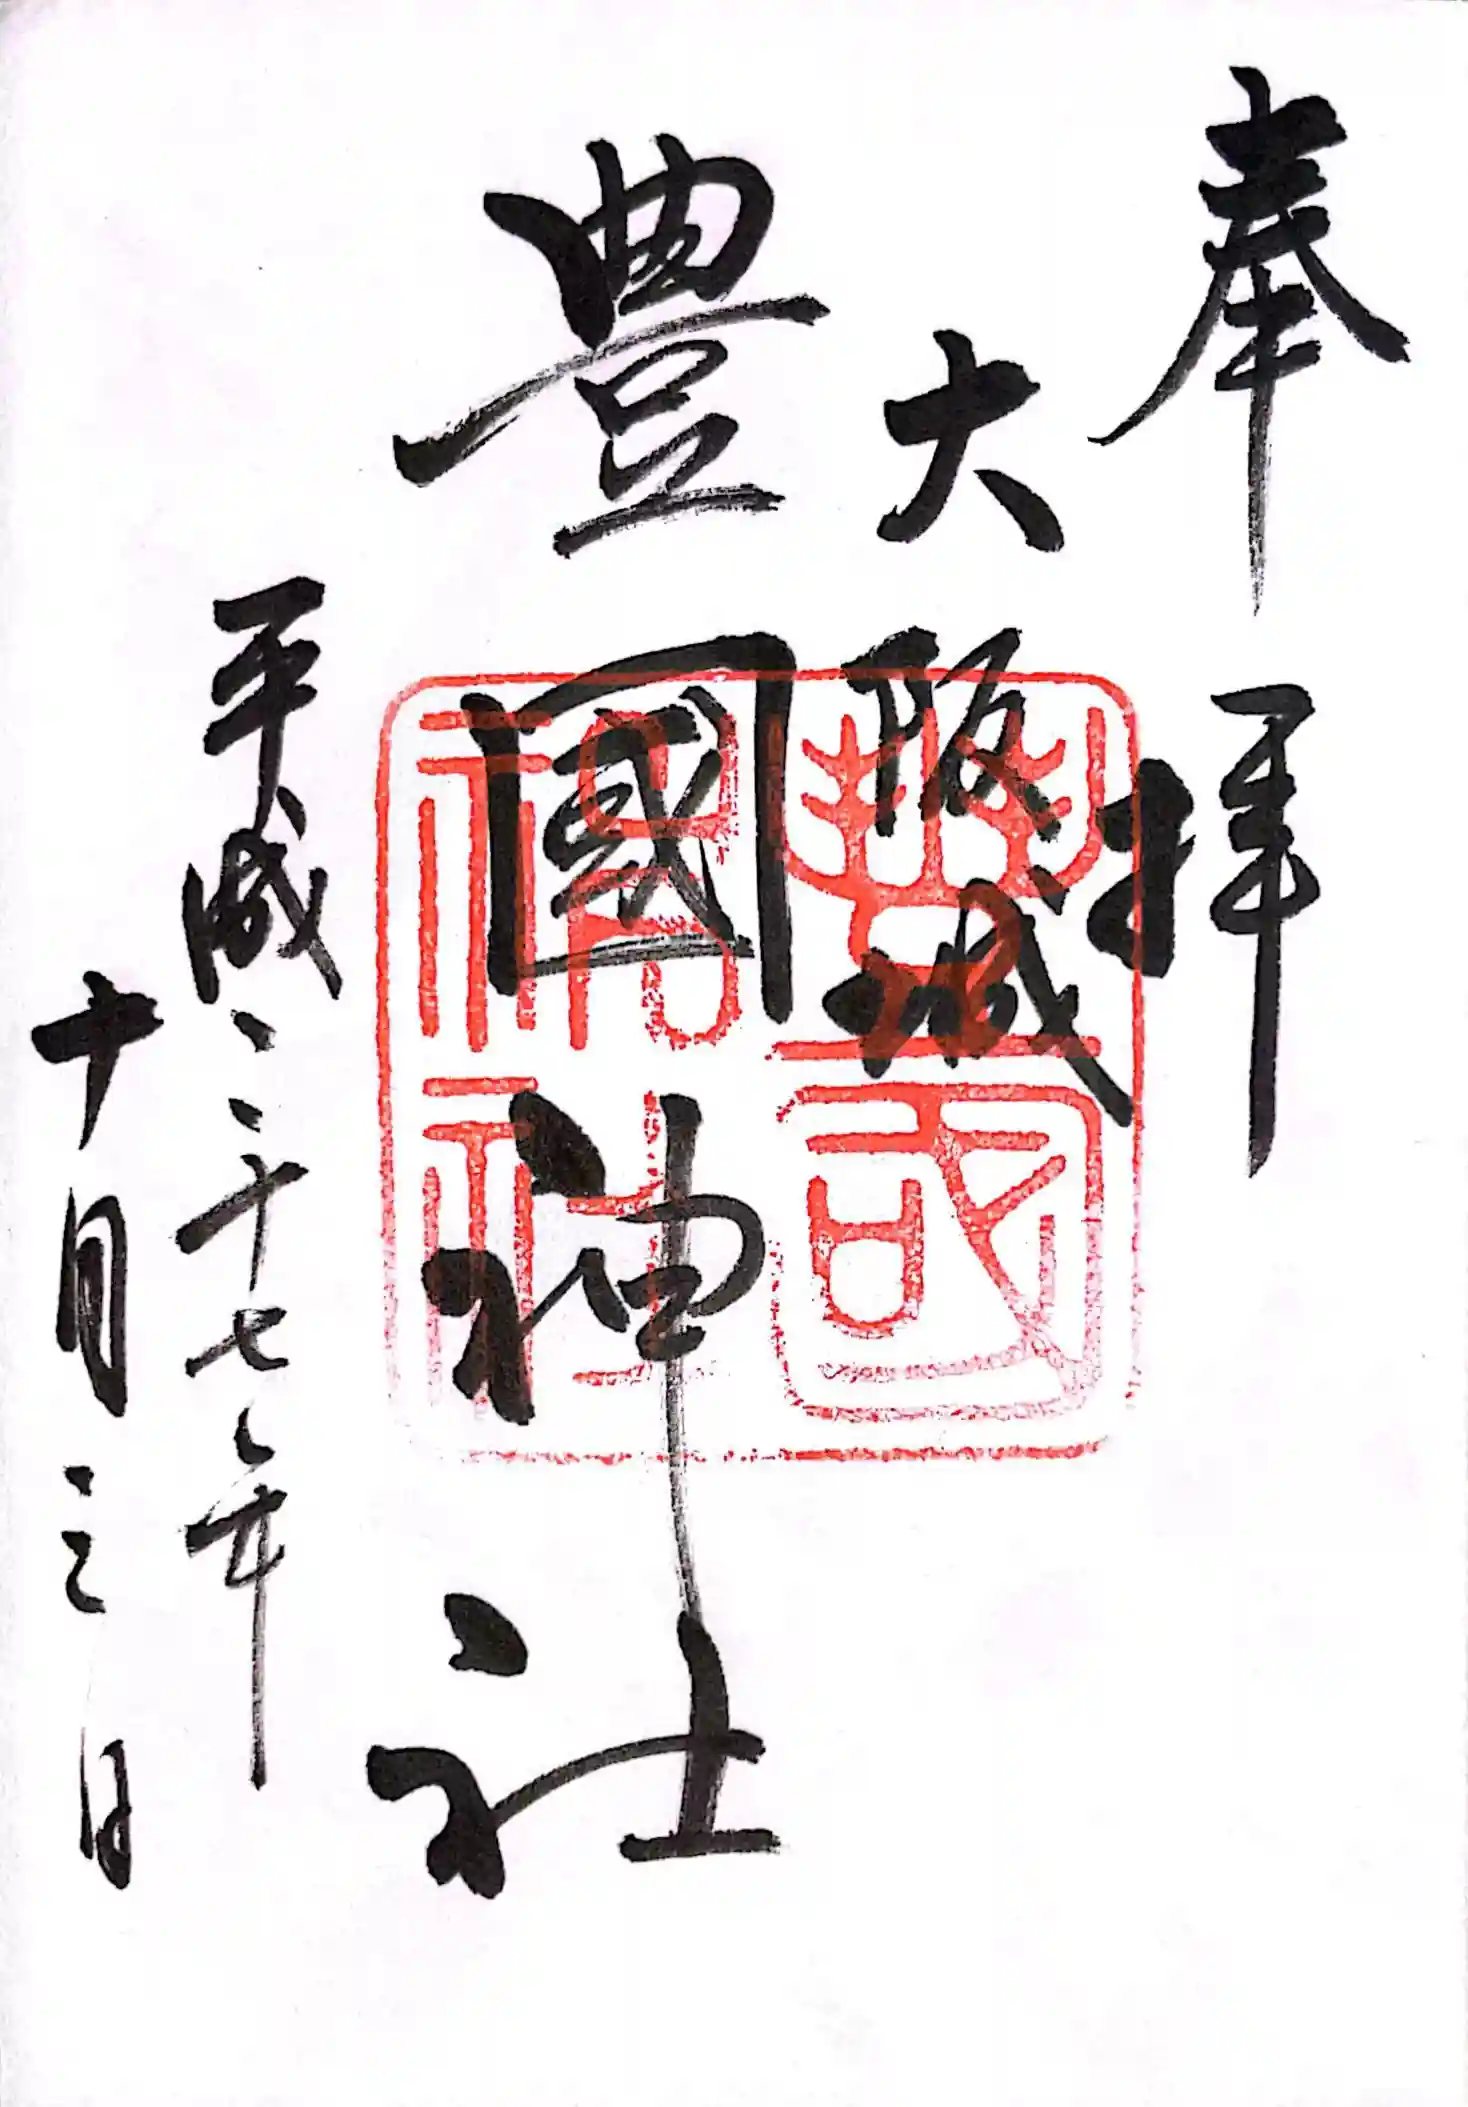 奉拝
大阪城
豊國神社
豐國神社
平成二十七年
十月三日